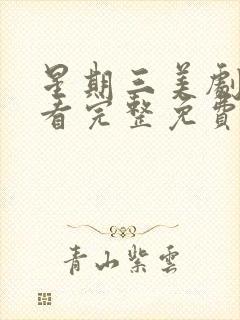 星期三美劇
看完整免費
青山紫雲